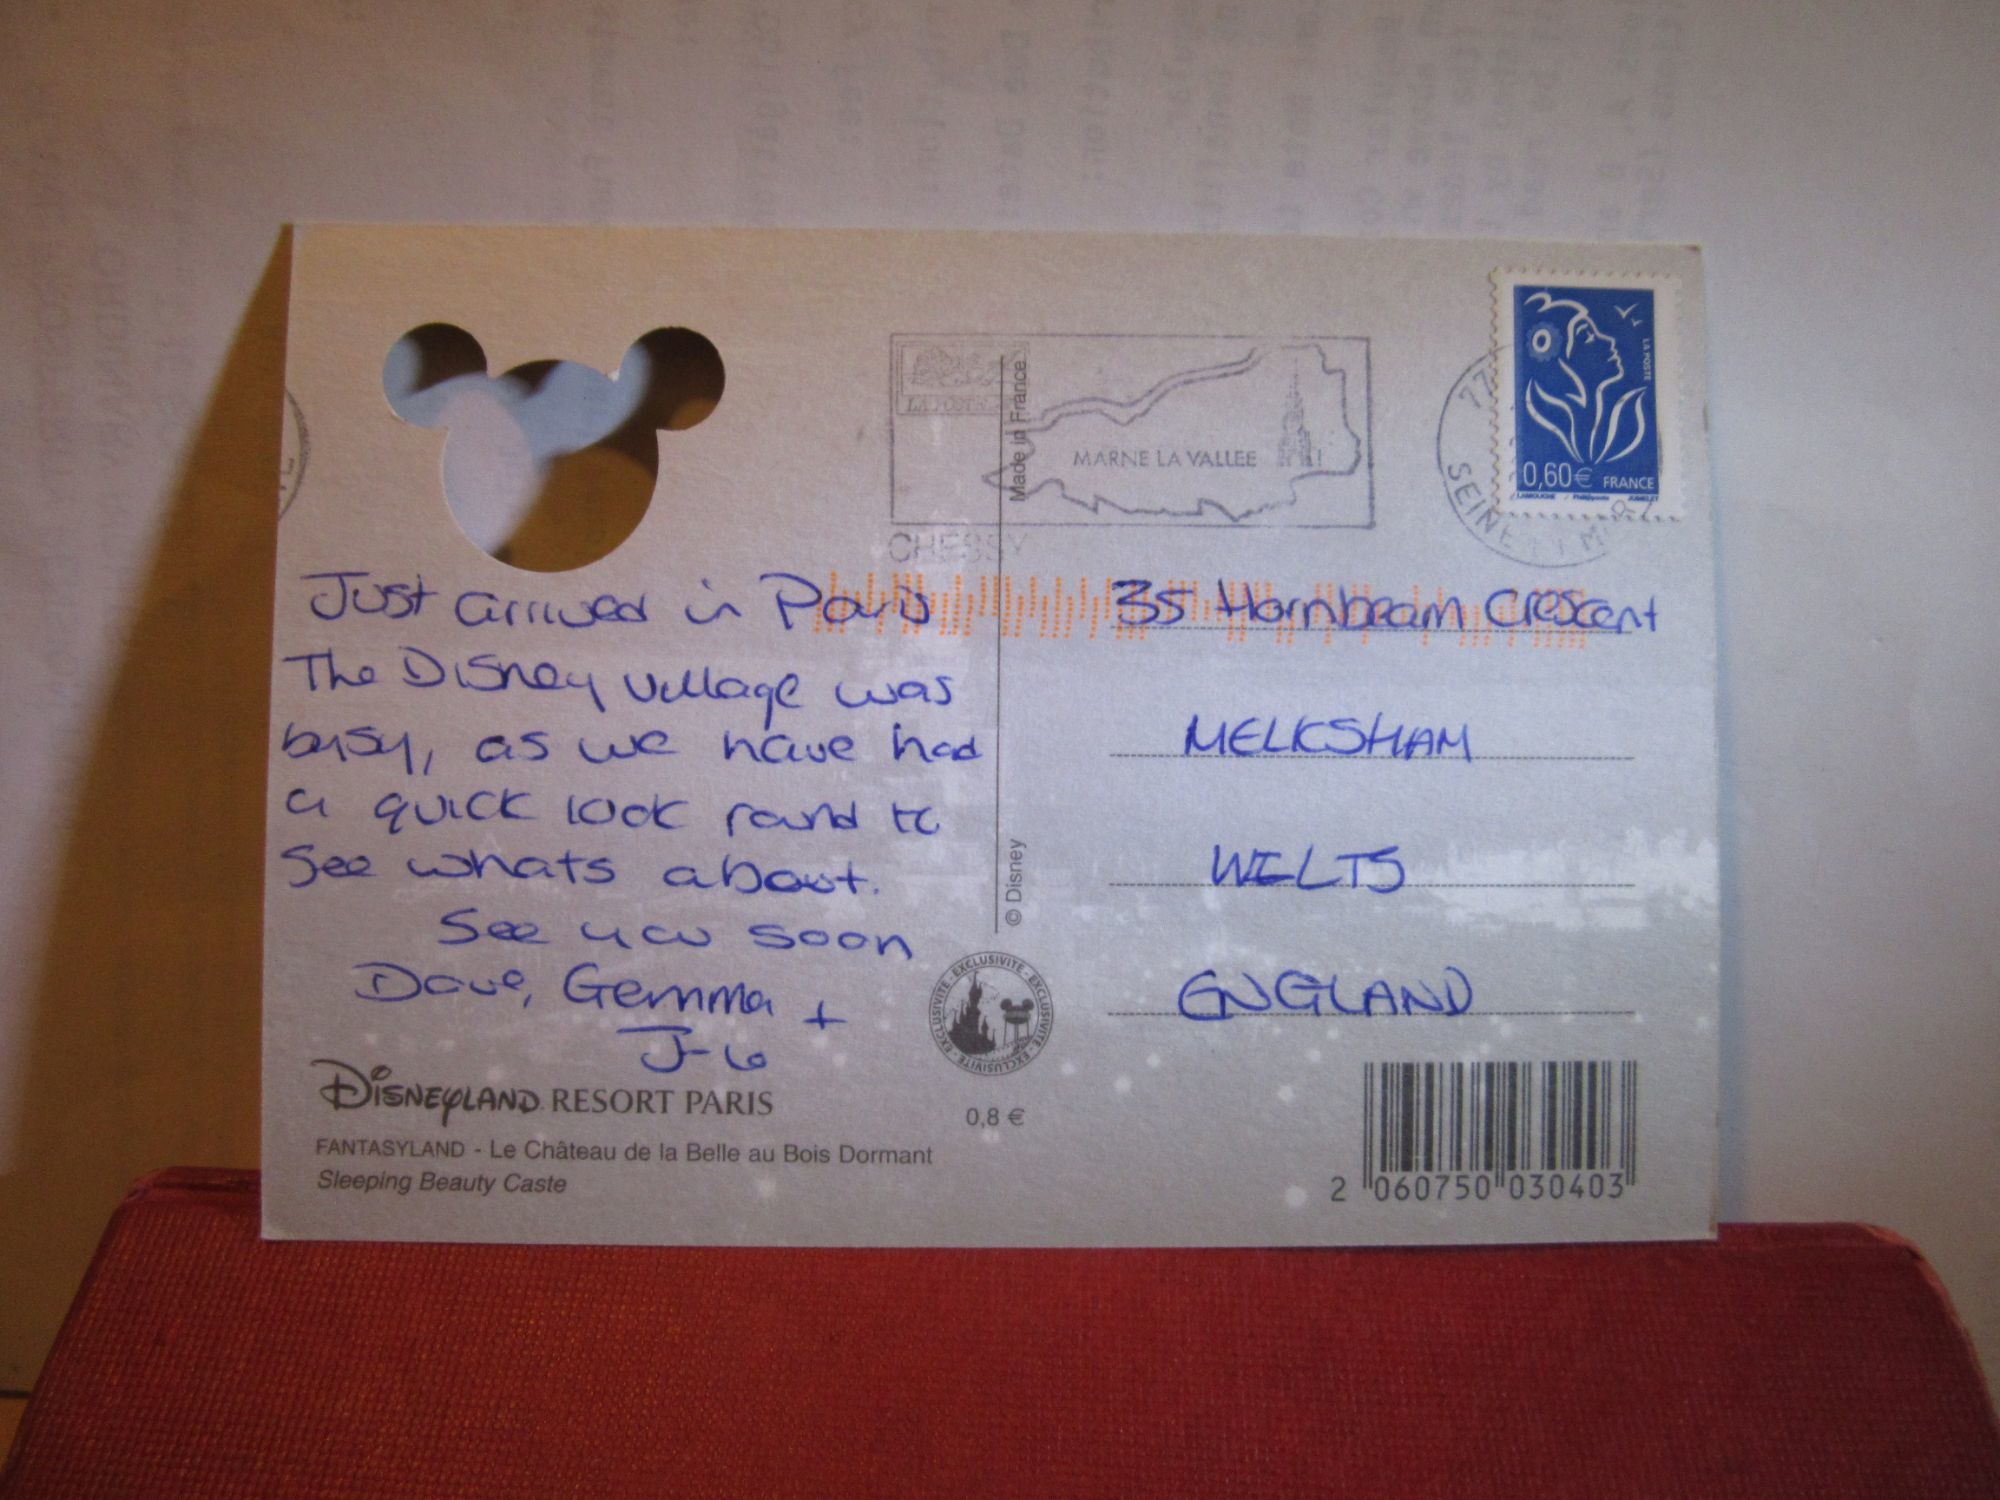 LA POSTE
MARNE LA VALLEE
CHESSY
Made in France
77
SEINE ET M
LA POSTE
0,60€ FRANCE
LAMOUCHE Phil@poste JUMELET
Just arrived in Paris
The Disney Village was
busy, as we have had
a quick look round to
see whats about.
See you soon
Dave, Gemma +
35 Hornbeam Crescent
MELKSHAM
WILTS
ENGLAND
© Disney
EXCLUSIVITE - EXCLUSIVITE - EXCLUSIVITE - EXCLUSIVITE -
0,8 €
DISNEYLAND RESORT PARIS
FANTASYLAND - Le Château de la Belle au Bois Dormant
Sleeping Beauty Caste
2 060750 030403